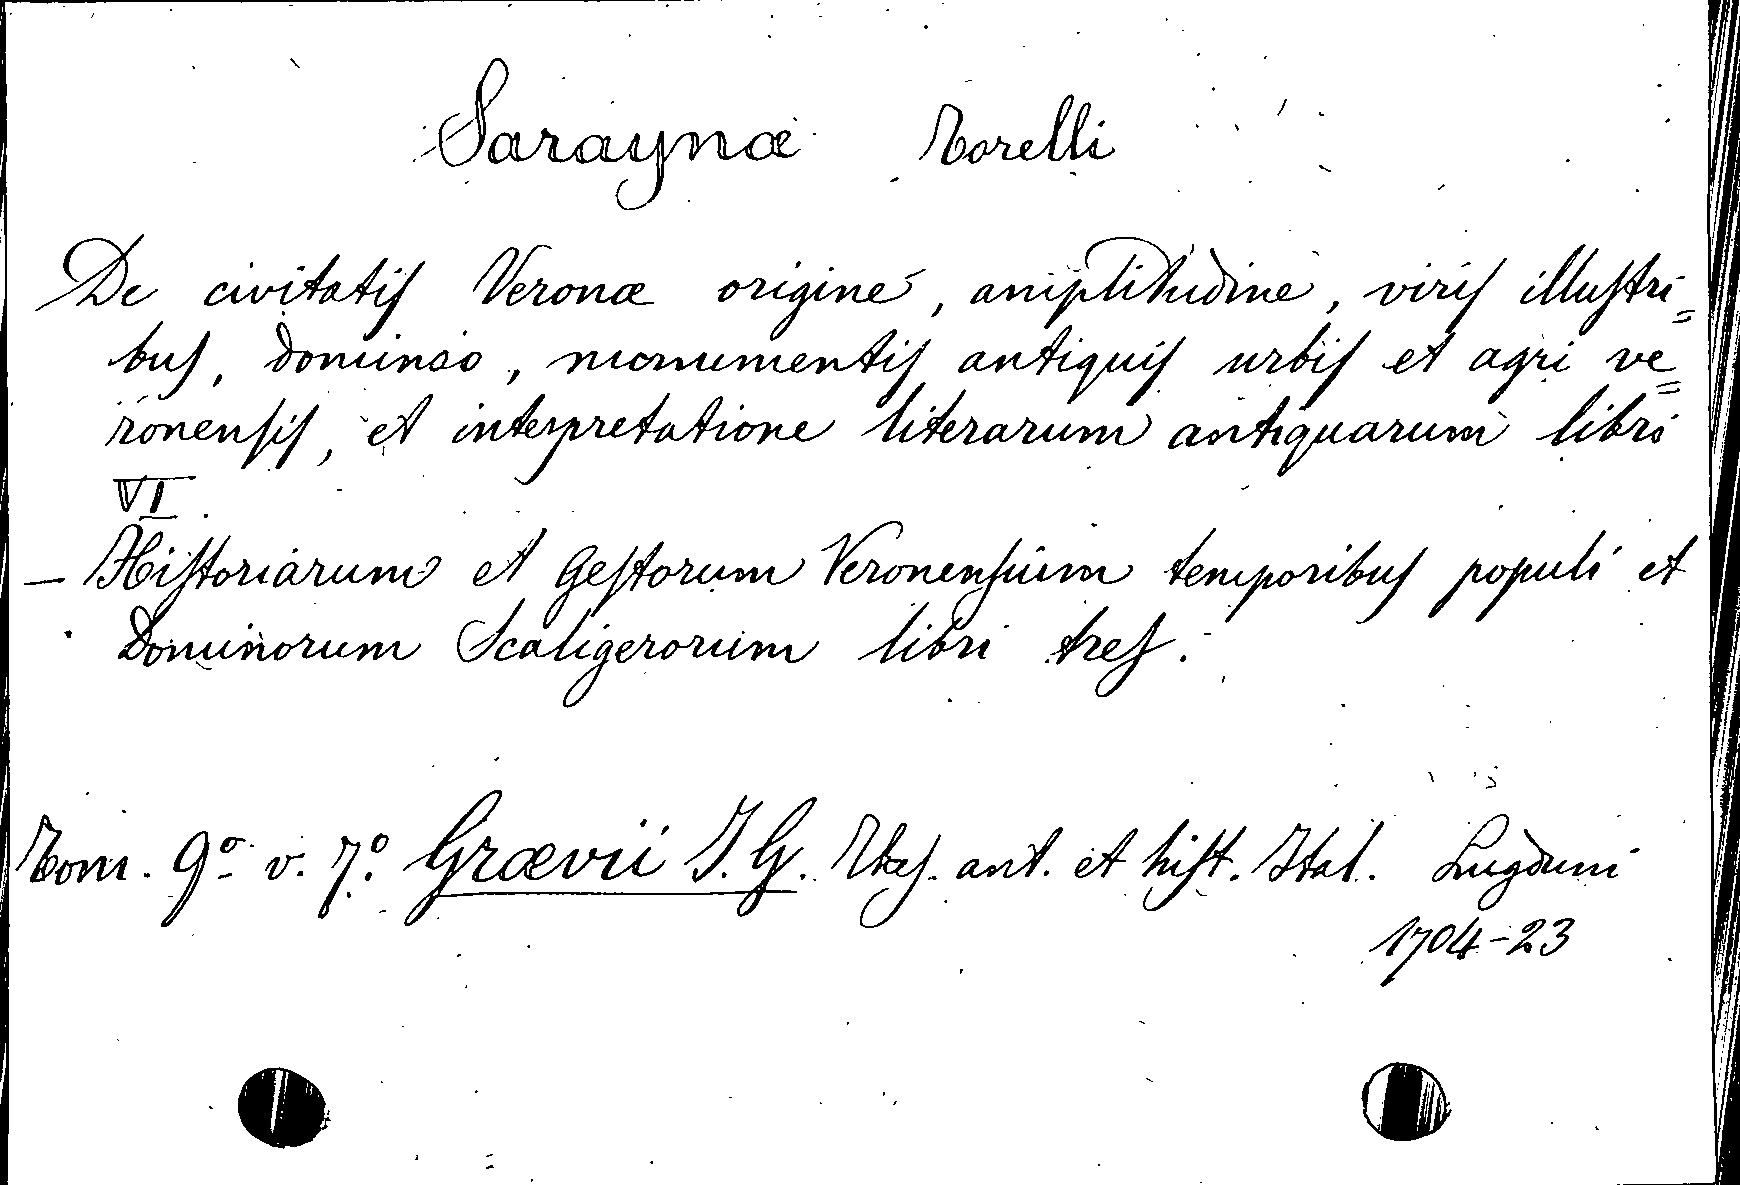 Saraynæ Torelli
De civitatis Veronæ origine, amplitudine, viris illustri=
bus, dominio, monumentis antiquis urbis et agri ve=
ronensis, et interpretatione literarum antiquarum libri
VI.
— Historiarum et Gestorum Veronensium temporibus populi et
Dominorum Scaligerorum libri tres.
Tom. 9º v. 7º Grævii J. G. Thes. ant. et hist. Ital. Lugduni
1704-23